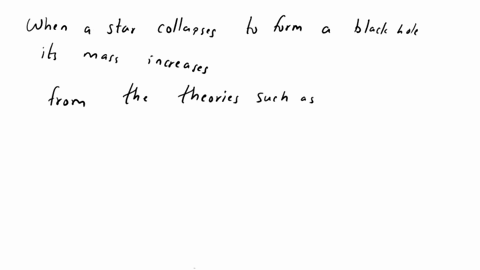 When a star collapses to form a black hole
its mass increases
from the theories such as